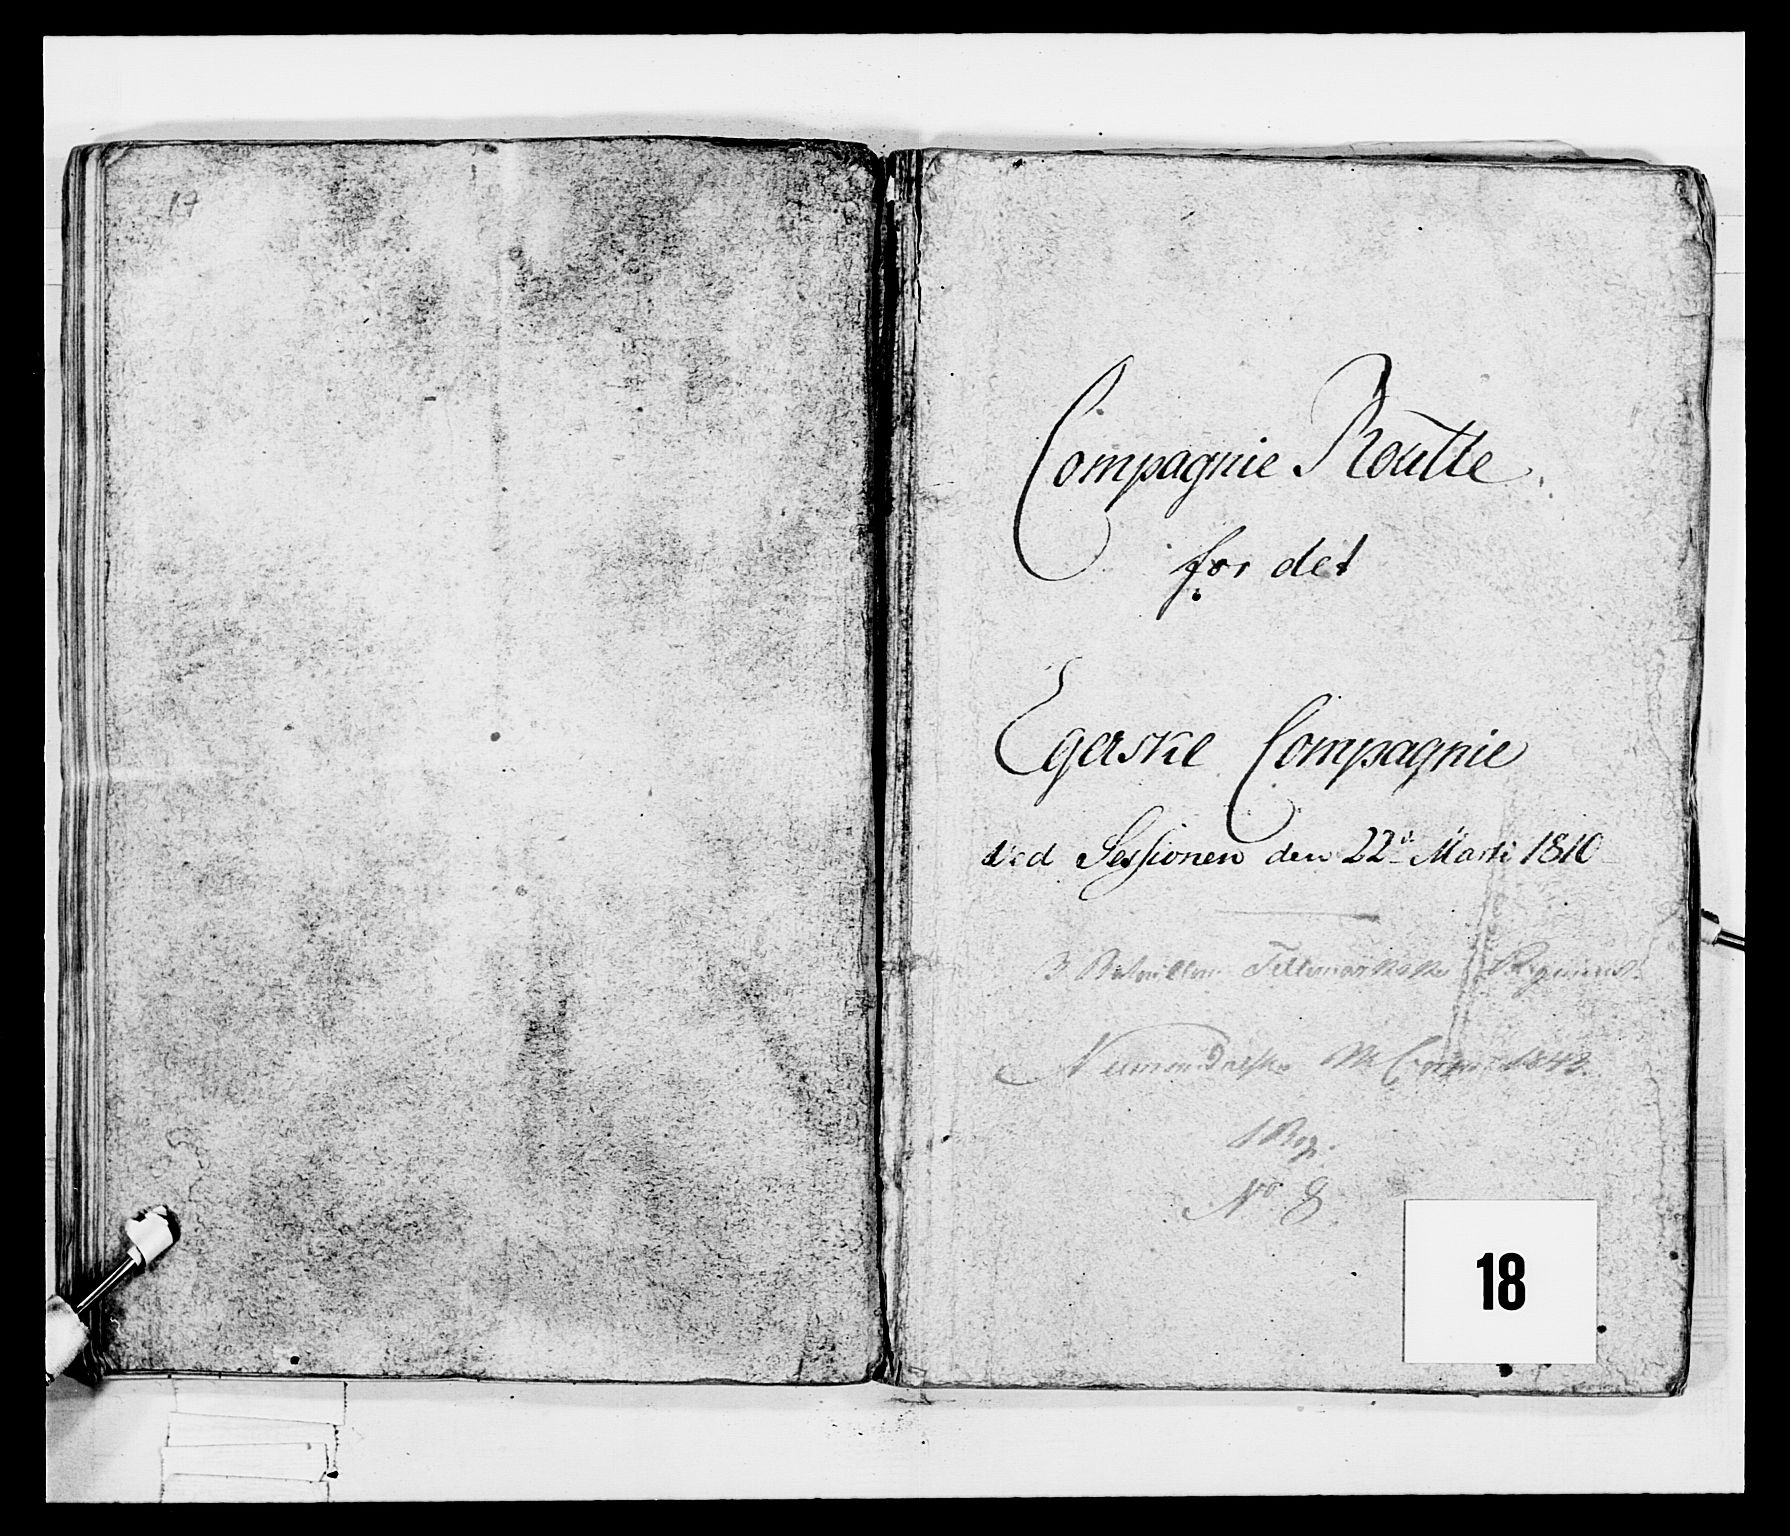 17
Compagnie Roulle
for det
Egerske Compagnie
ved Sessionen den 22d Marti 1810
3 Bataillon Tellemarkske Regiment
Numedalske
No 8
18